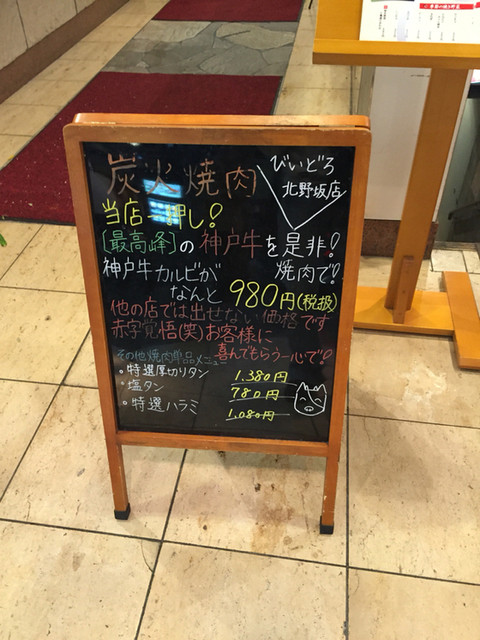 炭火焼肉
びいどろ
北野坂店
当店一押し!
[最高峰]の神戸牛を是非!
神戸牛カルビが 焼肉で!
なんと 980円(税抜)
他の店では出せない価格です
赤字覚悟(笑)お客様に
喜んでもらう一心で!
その他焼肉単品メニュー
・特選厚切りタン 1.380円
・塩タン 780円
・特選ハラミ 1.080円